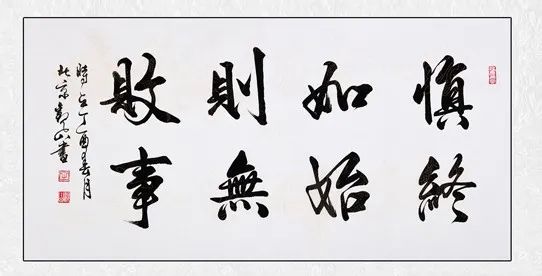 慎終
如始
則無
敗事
時在丁酉春月
北京山書